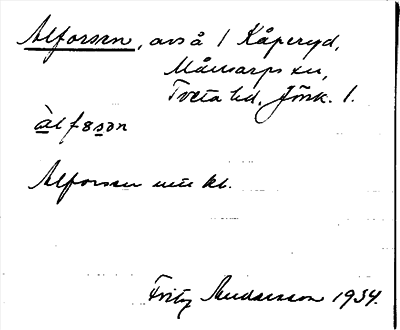 Alforsen, avs å 1 Kåperyd,
Månsarps sn,
Tveta hd, Jönk. l.
àlfɘsɘn
Alforsen
Fritz Andersson 1934.